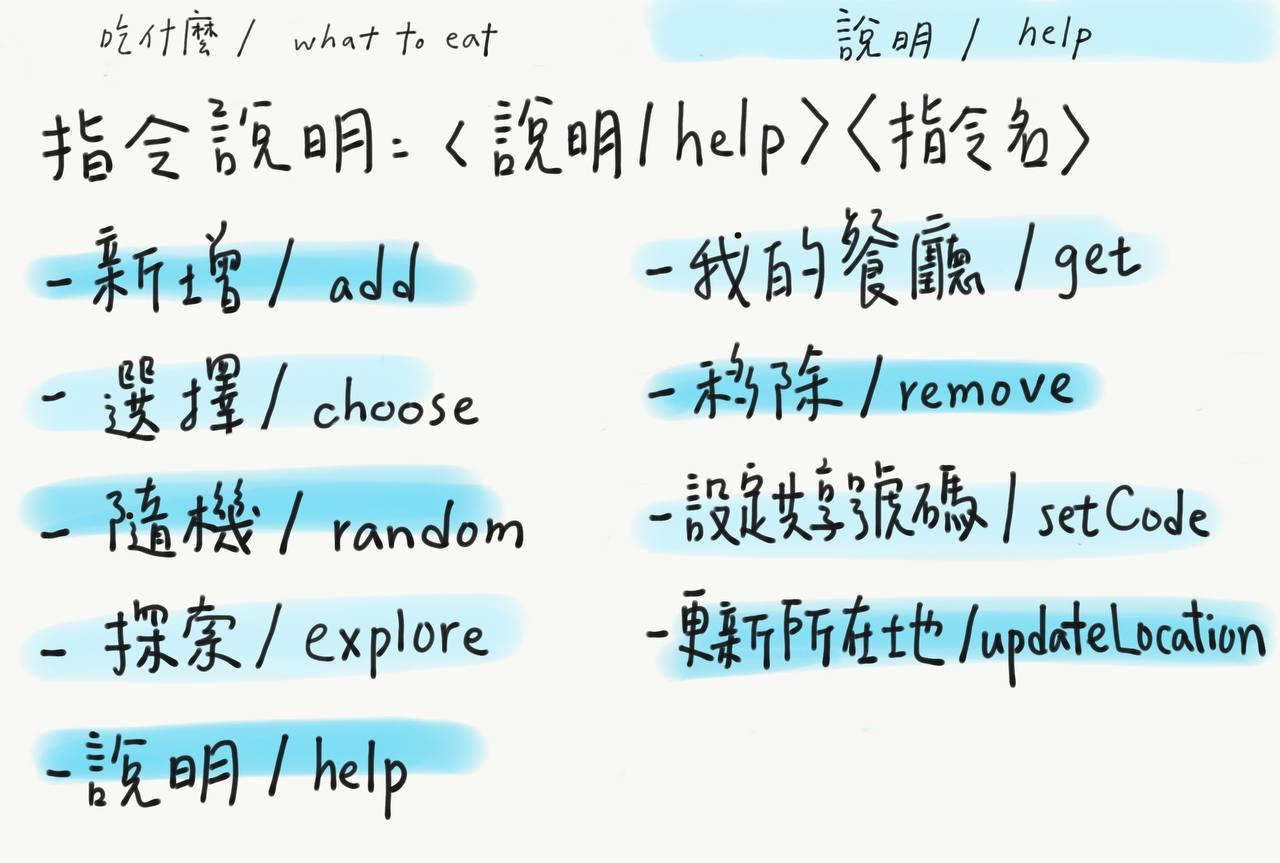 吃什麼 / what to eat
說明 / help
指令說明：<說明/help><指令名>
- 新增 / add
- 選擇 / choose
- 隨機 / random
- 探索 / explore
- 說明 / help
- 我的餐廳 / get
- 移除 / remove
- 設定共享號碼 / setCode
- 更新所在地 /updateLocation